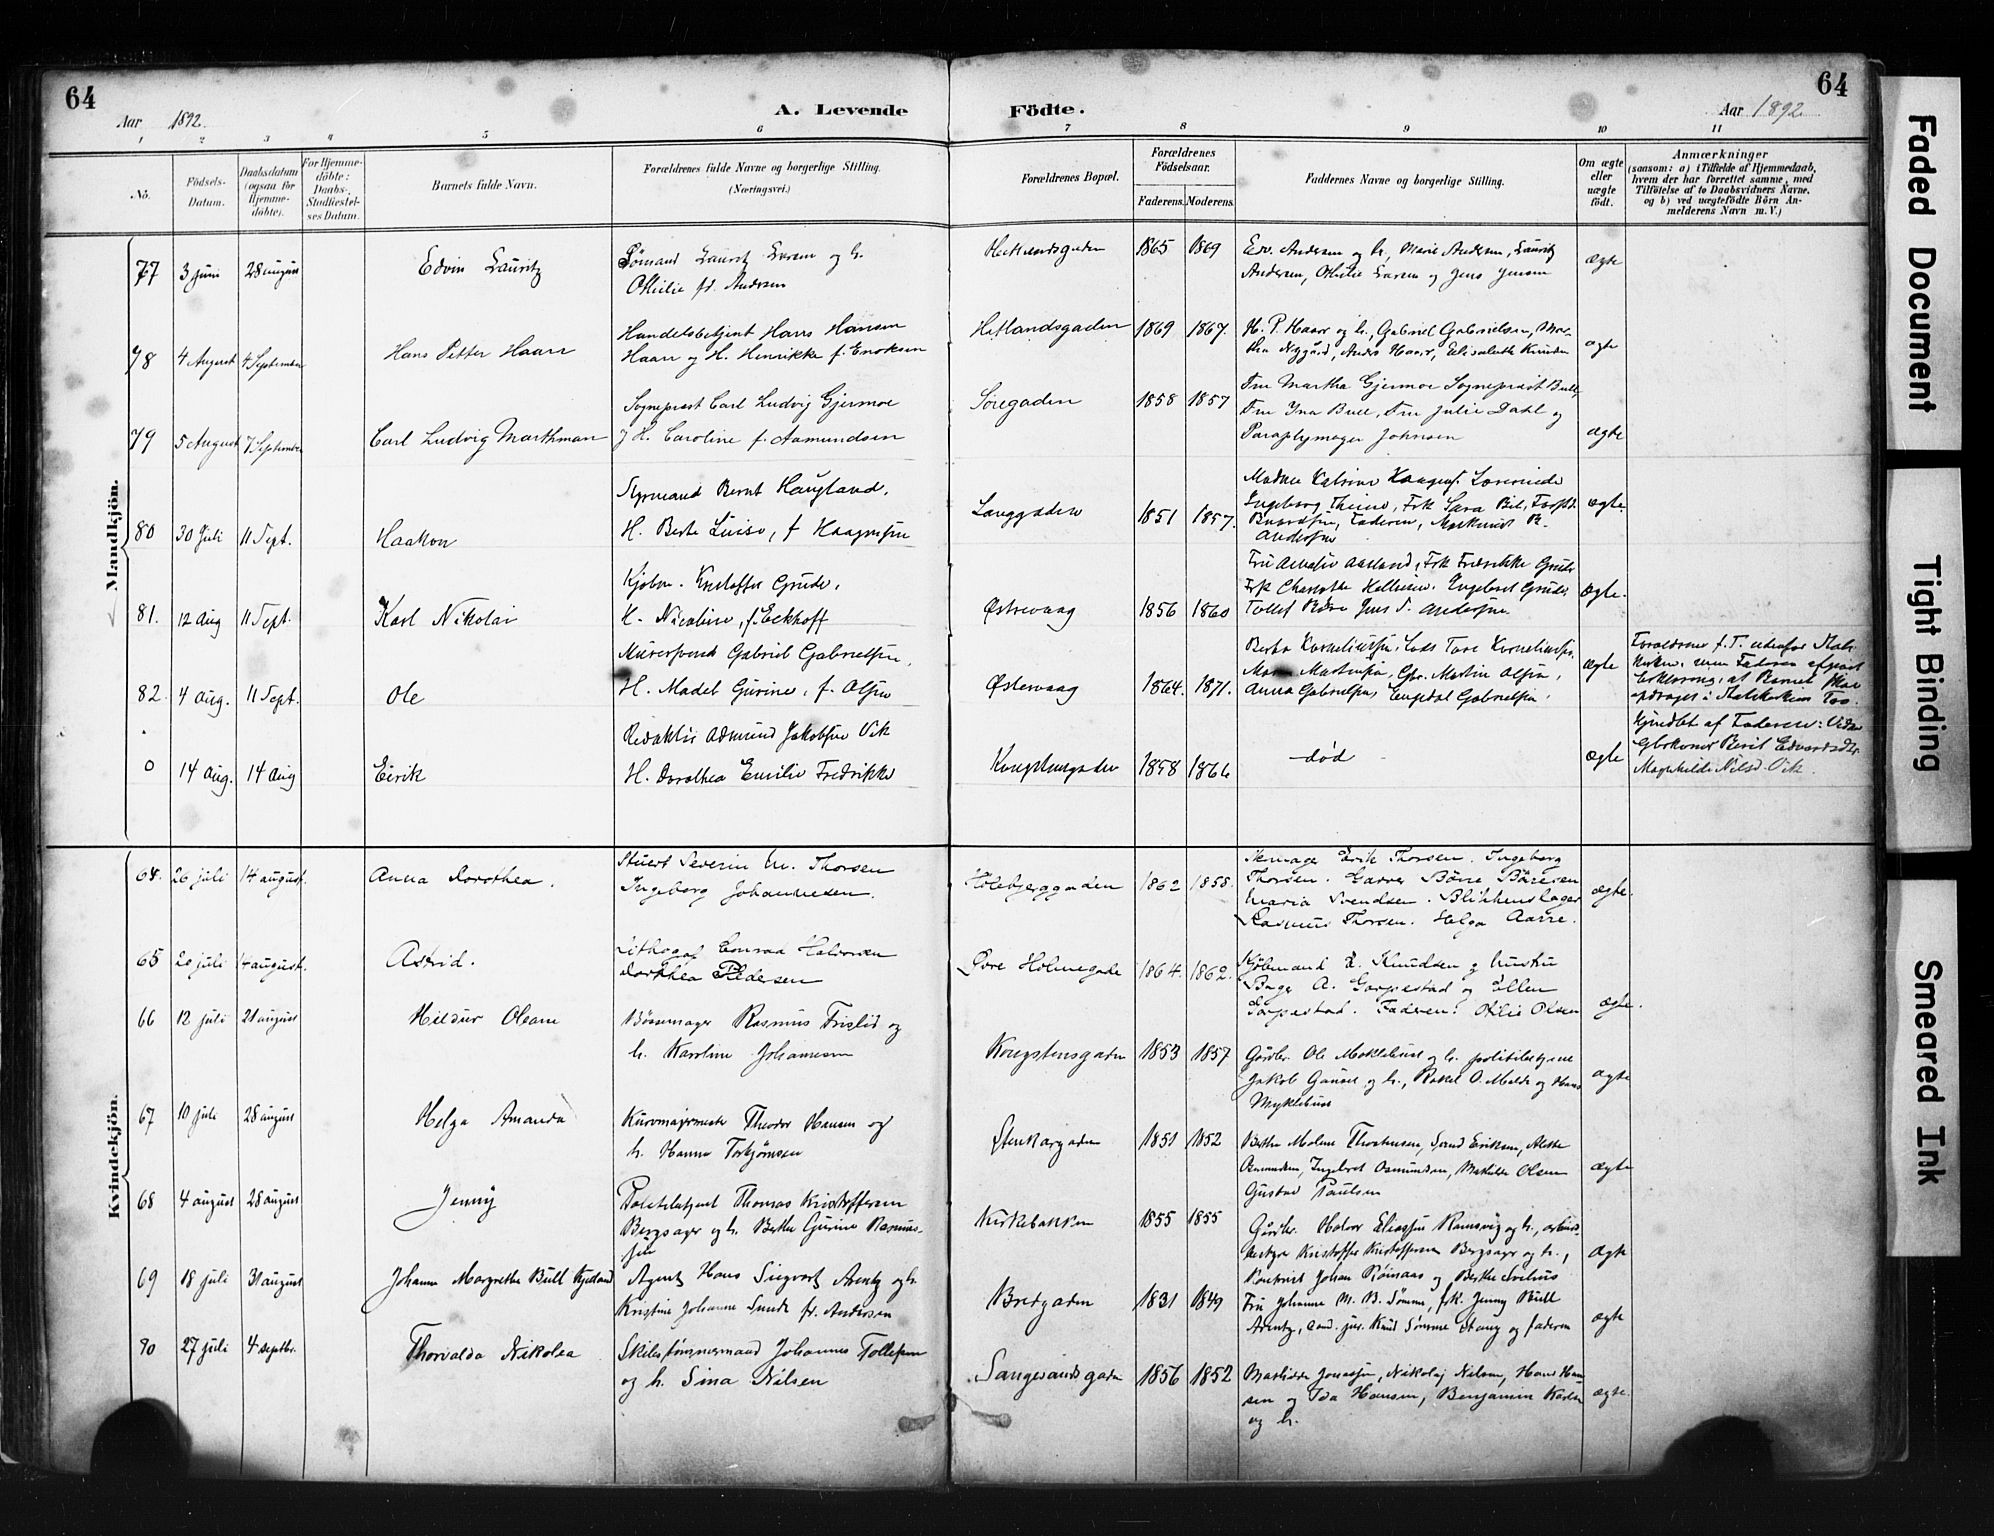 64
Aar 1892.
A. Levende
Födte.
Aar 1892
64
1 2 3 4 5 6 7 8 9 10 11
No.
Födsels-Datum.
Daabsdatum (ogsaa for Hjemme-döbte).
For Hjemme-döbte: Daabs-Stadfæstel-ses Datum.
Barnets fulde Navn.
Forældrenes fulde Navne og borgerlige Stilling. (Næringsvei.)
Forældrenes Bopæl.
Forældrenes Födselsaar.
Faderens. Moderens.
Faddernes Navne og borgerlige Stilling.
Om ægte eller uægte födt.
Anmærkninger
(saasom: a) i Tilfælde af Hjemmedaab, hvem der har forrettet samme, med Tilföielse af to Daabsvidners Navne, og b) ved uægtefödte Börn An-melderens Navn m. V.)
Mandkjön.
77 3 juni 28 august Edvin Lauritz
Sömand Lauritz Larsen og h.
Othilie fd. Andersen
Hetlandsgaden 1865 1869
Edv. Andersen og h., Marie Andersen, Lauritz
Andersen, Othilie Larsen og Jens Jensen
ægte
78 4 August 4 September Hans Petter Haarr
Handelsbetjent Hans Hansen
Haarr og H. Henrikke f. Enoksen
Hetlandsgaden 1869 1867.
H. P. Haarr og h., Gabriel Gabrielsen, Mar-
tha Nygård, Anders Haarr, Elisabeth Knudsen
ægte
79 5 August 7 September Carl Ludvig Marthman
Sogneprest Carl Ludvig Gjermoe
og H. Caroline f. Aamundsen
Søregaden 1858 1857
Fru Martha Gjermoe Sogneprest Bull,
Fru Ina Bull, Fru Julie Dahl og
Paraplymager Johnsen
ægte
80 30 Juli 11 Sept. Haakon
Styrmand Bernt Haugland,
H. Berte Luise, f
Langgaden 1851 1857.
Ingeborg Thime, Frk Sara
Faderen,
Andersen
ægte.
81. 12 Aug 11 Sept. Karl Nikolai
Kjøbm. Kristoffer Grude,
H. Nicoline, f. Eckhoff
Østrevaag 1856 1860
Fru Aasland, Frk Fredrikke Grude
Frk Charlotte Helliesen, Engebret Grude
Jens T. Andersen
ægte.
82. 4 aug. 11 Sept. Ole
Murersvend Gabriel Gabrielsen,
H. Madel Gurine, f. Olsen
Østervaag 1864. 1871.
Berta Korneliussen, Lods Tore Korneliussen,
Martin Olsen,
Anna Gabrielsen, Engedal Gabrielsen
ægte
Forældrene f. T. udenfor Stats-
kirken, men Faderen afgivet
Erklæring, at Barnet skal
opdrages i Statskirkens Tro.
0 14 aug. 14 Aug Eirik
Redaktør Admund Jakobsen Vik
H. Dorothea Emilie Fredrikke
Kongsberggaden 1858 1866
død
ægte
Hjmdbt af Faderen: Vidner
Berit Edvardsdtr.
Magnhilde Nilsd. Vik.
Kvindekjön.
64. 26 juli 14 august. Anna Dorothea.
Stuert Severin M. Thorsen
Ingeborg Johannesen.
Holebjerggaden 1862 1858.
Skomager Erik Thorsen. Ingeborg
Thorsen. Garver Børre Børresen
Maria Svendsen. Blikkenslager
Rasmus Thorsen. Helga Aarre.
ægte.
65 20 juli 14 august. Astrid.
Lithograf Conrad Halvorsen
Dorthea Pedersen
Øvre Holmegade 1864. 1862.
Kjøbmand L. Knudsen og hustru
Bager A. Garpestad og Ellen
Garpestad. Faderen: Otilie Olsen
ægte.
66 12 juli 21 august Hildur Oleane
Bössemager Rasmus Tristid og
h. Karoline Johannesen
Kongstensgaden 1853 1857
Gårdbr. Ole Møklebust og h. politibetjent
Jakob Gausel og h., Rakel O. Melde og Hans
Myklebust
ægte
67 10 juli 28 august Helga Amanda
Kurvmagermester Theodor Hansen og
h. Hanna Torbjørnsen
Stenkargaden 1851 1852
Berthe Malene Thorstensen, Svend Eriksen, Alette
Osmundsen, Ingebret Osmundsen, Mathilde Olsen
Gustav Paulsen
ægte
68 4 august 28 august Jenny
Politibetjent Thomas Kristoffersen
Bergsager og h. Berthe Gurine Rasmus-
sen
Kirkebakken 1855 1855
Gårdbr. Halvor Eliassen Ramsvig og h., arbeids-
bestyrer Kristoffer Kristoffersen Bergsager og h.,
Johan Rømaas og Berthe
ægte
69 18 juli 31 august Johanne Margrethe Bull Kjelland
Agent Hans Siegvart Arentz og h.
Kristine Johanne Sunde fd. Andersen
Bredgaden 1831 1849
Fru Johanne M. B. Sømme, frk. Jenny Bull
Arentz, cand. jur. Knud Sømme Stang og faderen
ægte
70 27 juli 4 septbr. Thorvalda Nikolea
Skibstømmermand Johannes Tollefsen
og h. Sina Nilsen
Sangesandsgaden 1856 1852
Jonassen, Nikolaj Nilsen, Hans Han-
sen og Ida Hansen, Benjamin Karlsen
og h.
ægte.
Faded Document
Tight Binding
Smeared Ink